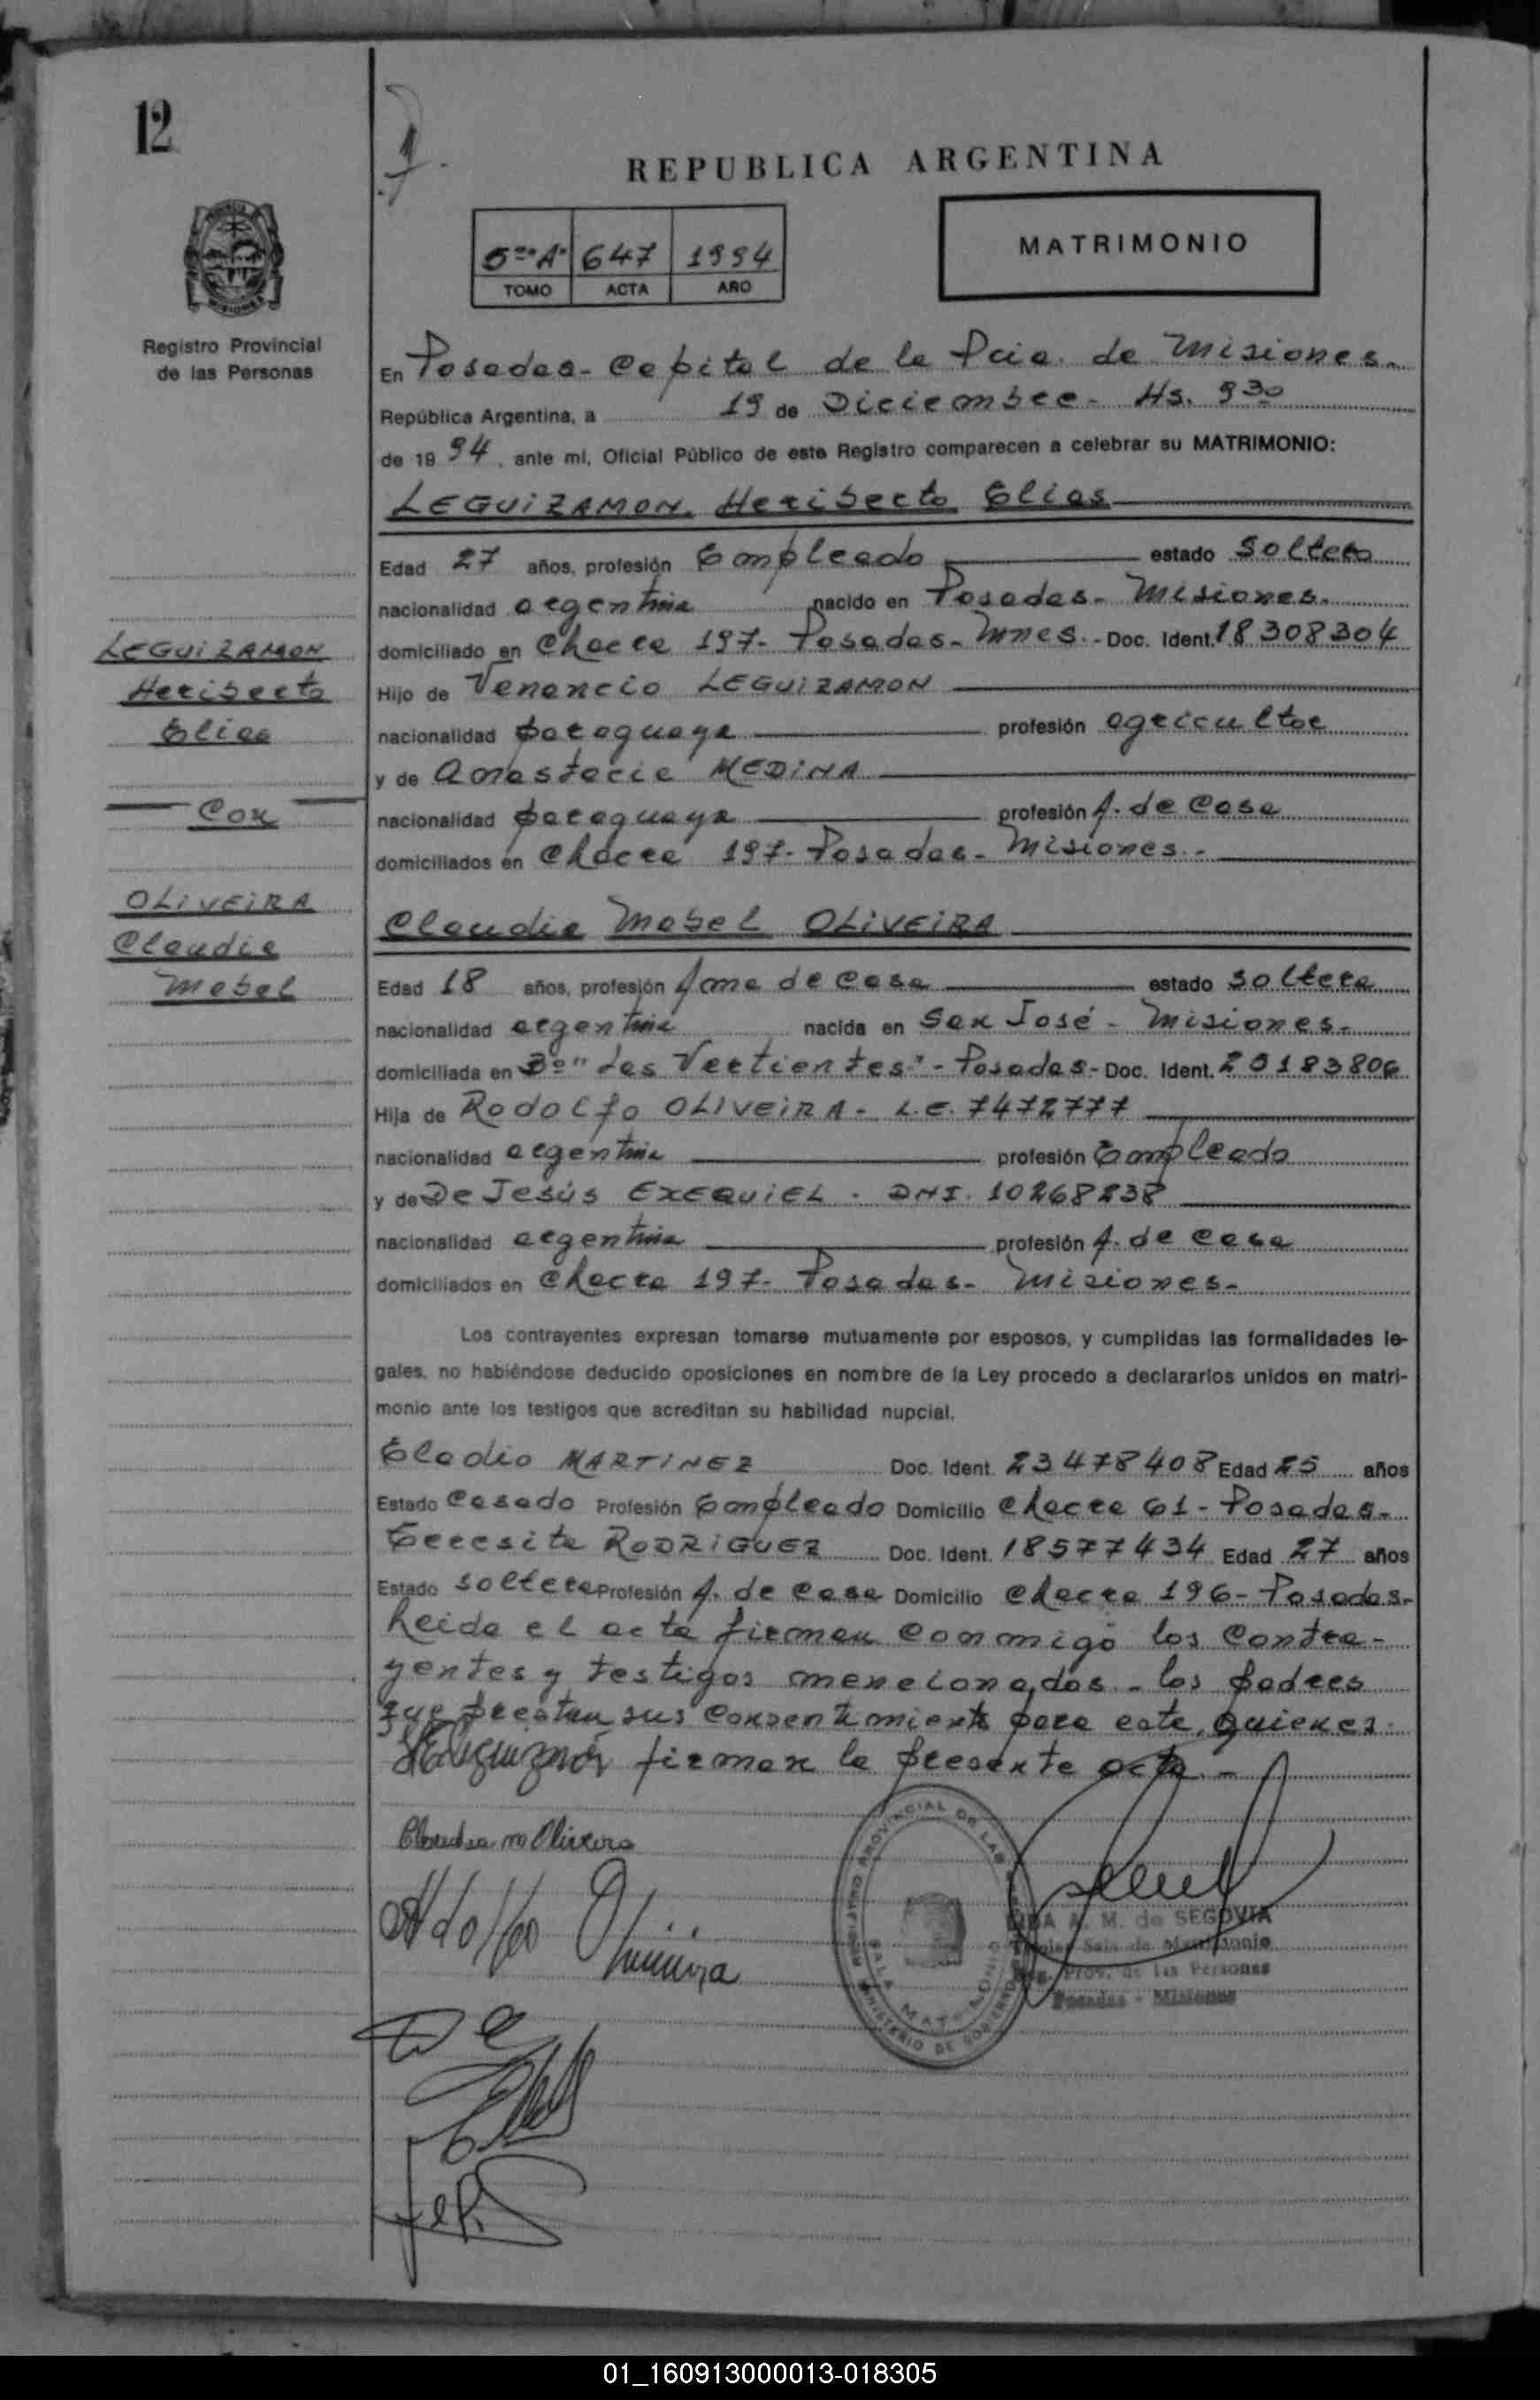 12
1
REPUBLICA ARGENTINA
5to A. 647 1994
TOMO ACTA AÑO
MATRIMONIO
Registro Provincial
de las Personas
En Posadas - Capital de la Pcia. de Misiones.
República Argentina, a 19 de Diciembre - Hs. 9 30
de 19 94, ante mí, Oficial Público de este Registro comparecen a celebrar su MATRIMONIO:
LEGUIZAMON, Heriberto Elias
Edad 27 años, profesión Empleado estado soltero
nacionalidad argentina nacido en Posadas - Misiones.
domiciliado en Chacra 197 - Posadas - Mnes. - Doc. Ident. 18308304
Hijo de Venancio LEGUIZAMON
nacionalidad paraguaya profesión agricultor
y de Anastacia MEDINA
nacionalidad paraguaya profesión A. de Casa
domiciliados en Chacra 197 - Posadas - Misiones.-
LEGUIZAMON
Heriberto
Elias
Con
OLIVEIRA
Claudia
Mabel
Claudia Mabel OLIVEIRA
Edad 18 años, profesión Ama de Casa estado soltera
nacionalidad argentina nacida en San José - Misiones.
domiciliada en Bº "Las Vertientes" - Posadas - Doc. Ident. 25183806
Hija de Rodolfo OLIVEIRA - L.E. 7472777
nacionalidad argentina profesión Empleado
y de De Jesús EXEQUIEL - DNI. 10268238
nacionalidad argentina profesión A. de Casa
domiciliados en Chacra 197 - Posadas - Misiones.
Los contrayentes expresan tomarse mutuamente por esposos, y cumplidas las formalidades le-
gales, no habiéndose deducido oposiciones en nombre de la Ley procedo a declararlos unidos en matri-
monio ante los testigos que acreditan su habilidad nupcial.
Eladio MARTINEZ Doc. Ident. 23478408 Edad 25 años
Estado Casado Profesión Empleado Domicilio Chacra 61 - Posadas.
Teresita RODRIGUEZ Doc. Ident. 18577434 Edad 27 años
Estado soltera Profesión A. de Casa Domicilio Chacra 196 - Posadas.
Leida el acta firman conmigo los contra-
yentes y testigos mencionados - los padres
que prestan sus consentimiento para este, quienes
firman la presente acta -
Claudia M Oliveira
Adolfo Oliveira
A. M. de SEGOVIA
Sala de Matrimonio
Reg. Prov. de las Personas
Posadas - Misiones
PROVINCIAL DE LAS
SALA MATRIMONIO
MINISTERIO DE GOBIERNO
01_160913000013-018305